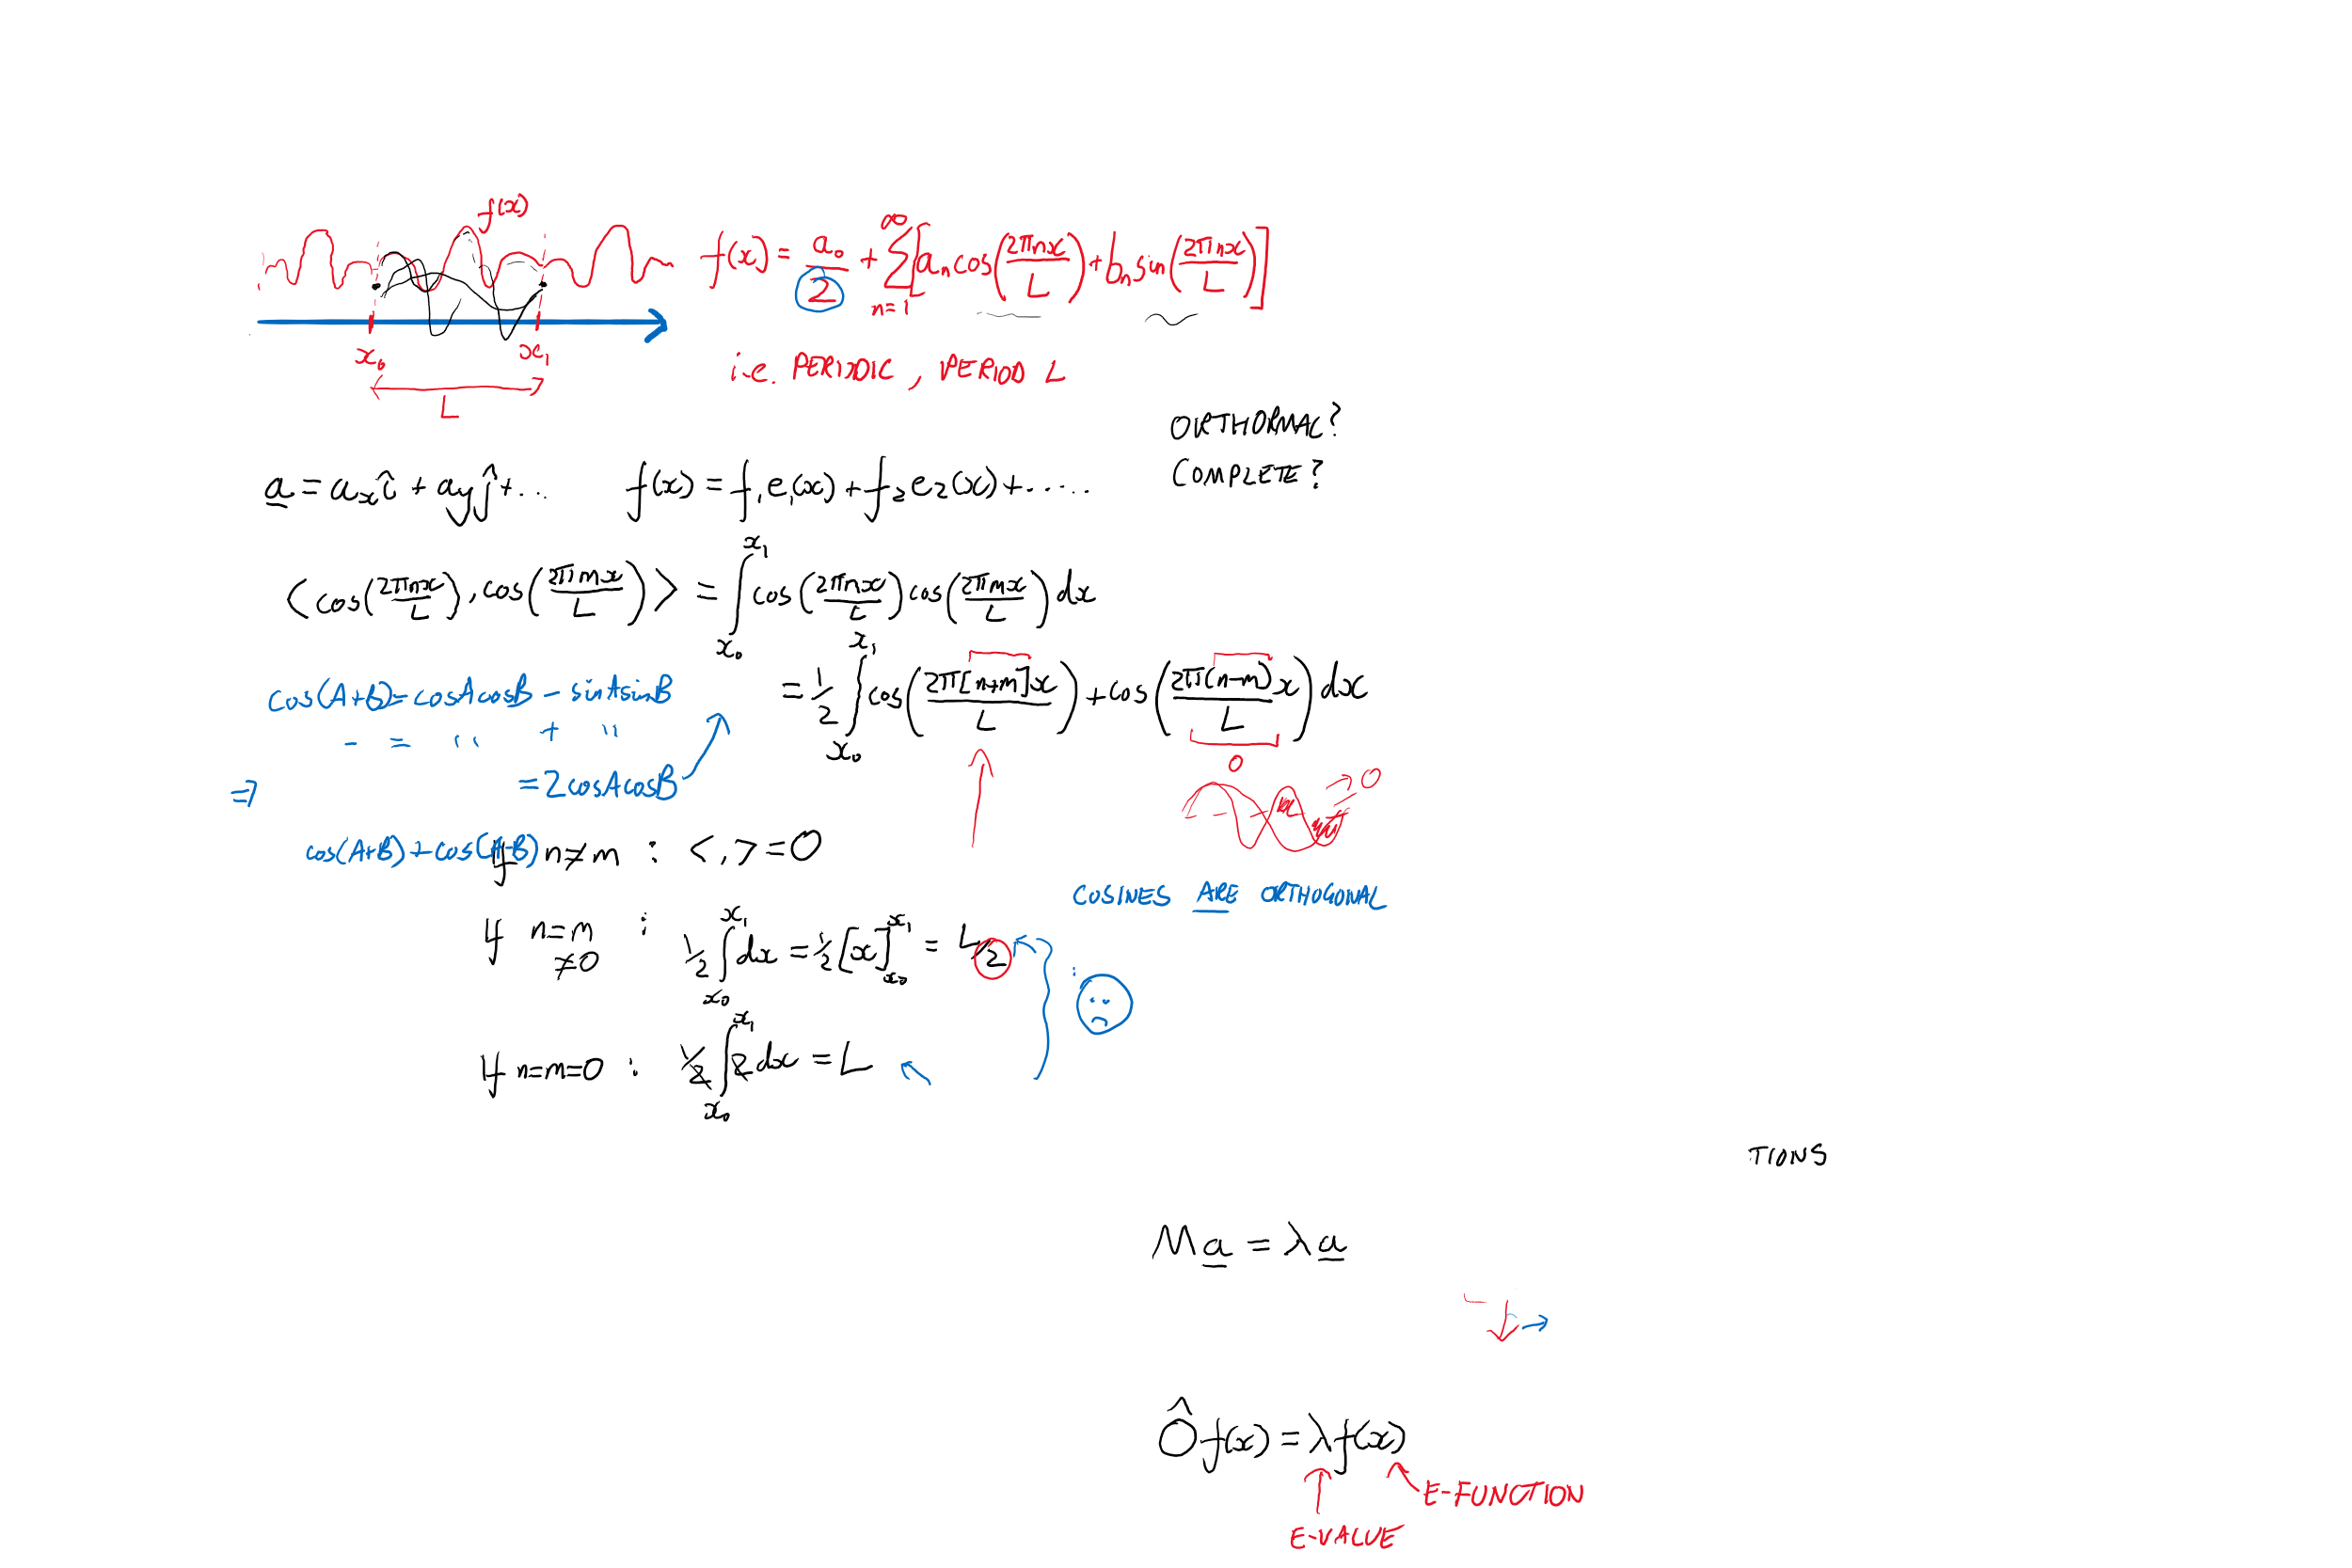 f(x)
f(x) = a₀/2 + ∑_{n=1}^{∞} [aₙ cos(2πnx/L) + bₙ sin(2πnx/L)]
x₀ x₁
L
i.e. PERIODIC, PERIOD L
ORTHORMAL?
COMPLETE?
a = aₓî + a_y ĵ + ... f(x) = f₁e₁(x) + f₂e₂(x) + .....
<cos(2πnx/L), cos(2πmx/L)> = ∫_{x₀}^{x₁} cos(2πnx/L) cos(2πmx/L) dx
= 1/2 ∫_{x₀}^{x₁} cos(2π[n+m]x/L) + cos(2π(n-m)x/L) dx
0
cos(A+B) = cosAcosB - sinAsinB
- = " + "
⇒ = 2cosAcosB
→ 0
cos(A+B) + cos(A-B)
If n≠m : < , > = 0
COSINES ARE ORTHOGONAL
If n=m ≠0 : 1/2 ∫_{x₀}^{x₁} dx = 1/2 [x]_{x₀}^{x₁} = L/2
If n=m=0 : 1/2 ∫_{x₀}^{x₁} 2 dx = L
TIONS
Ma = λa
Ôf(x) = λf(x)
E-FUNCTION
E-VALUE